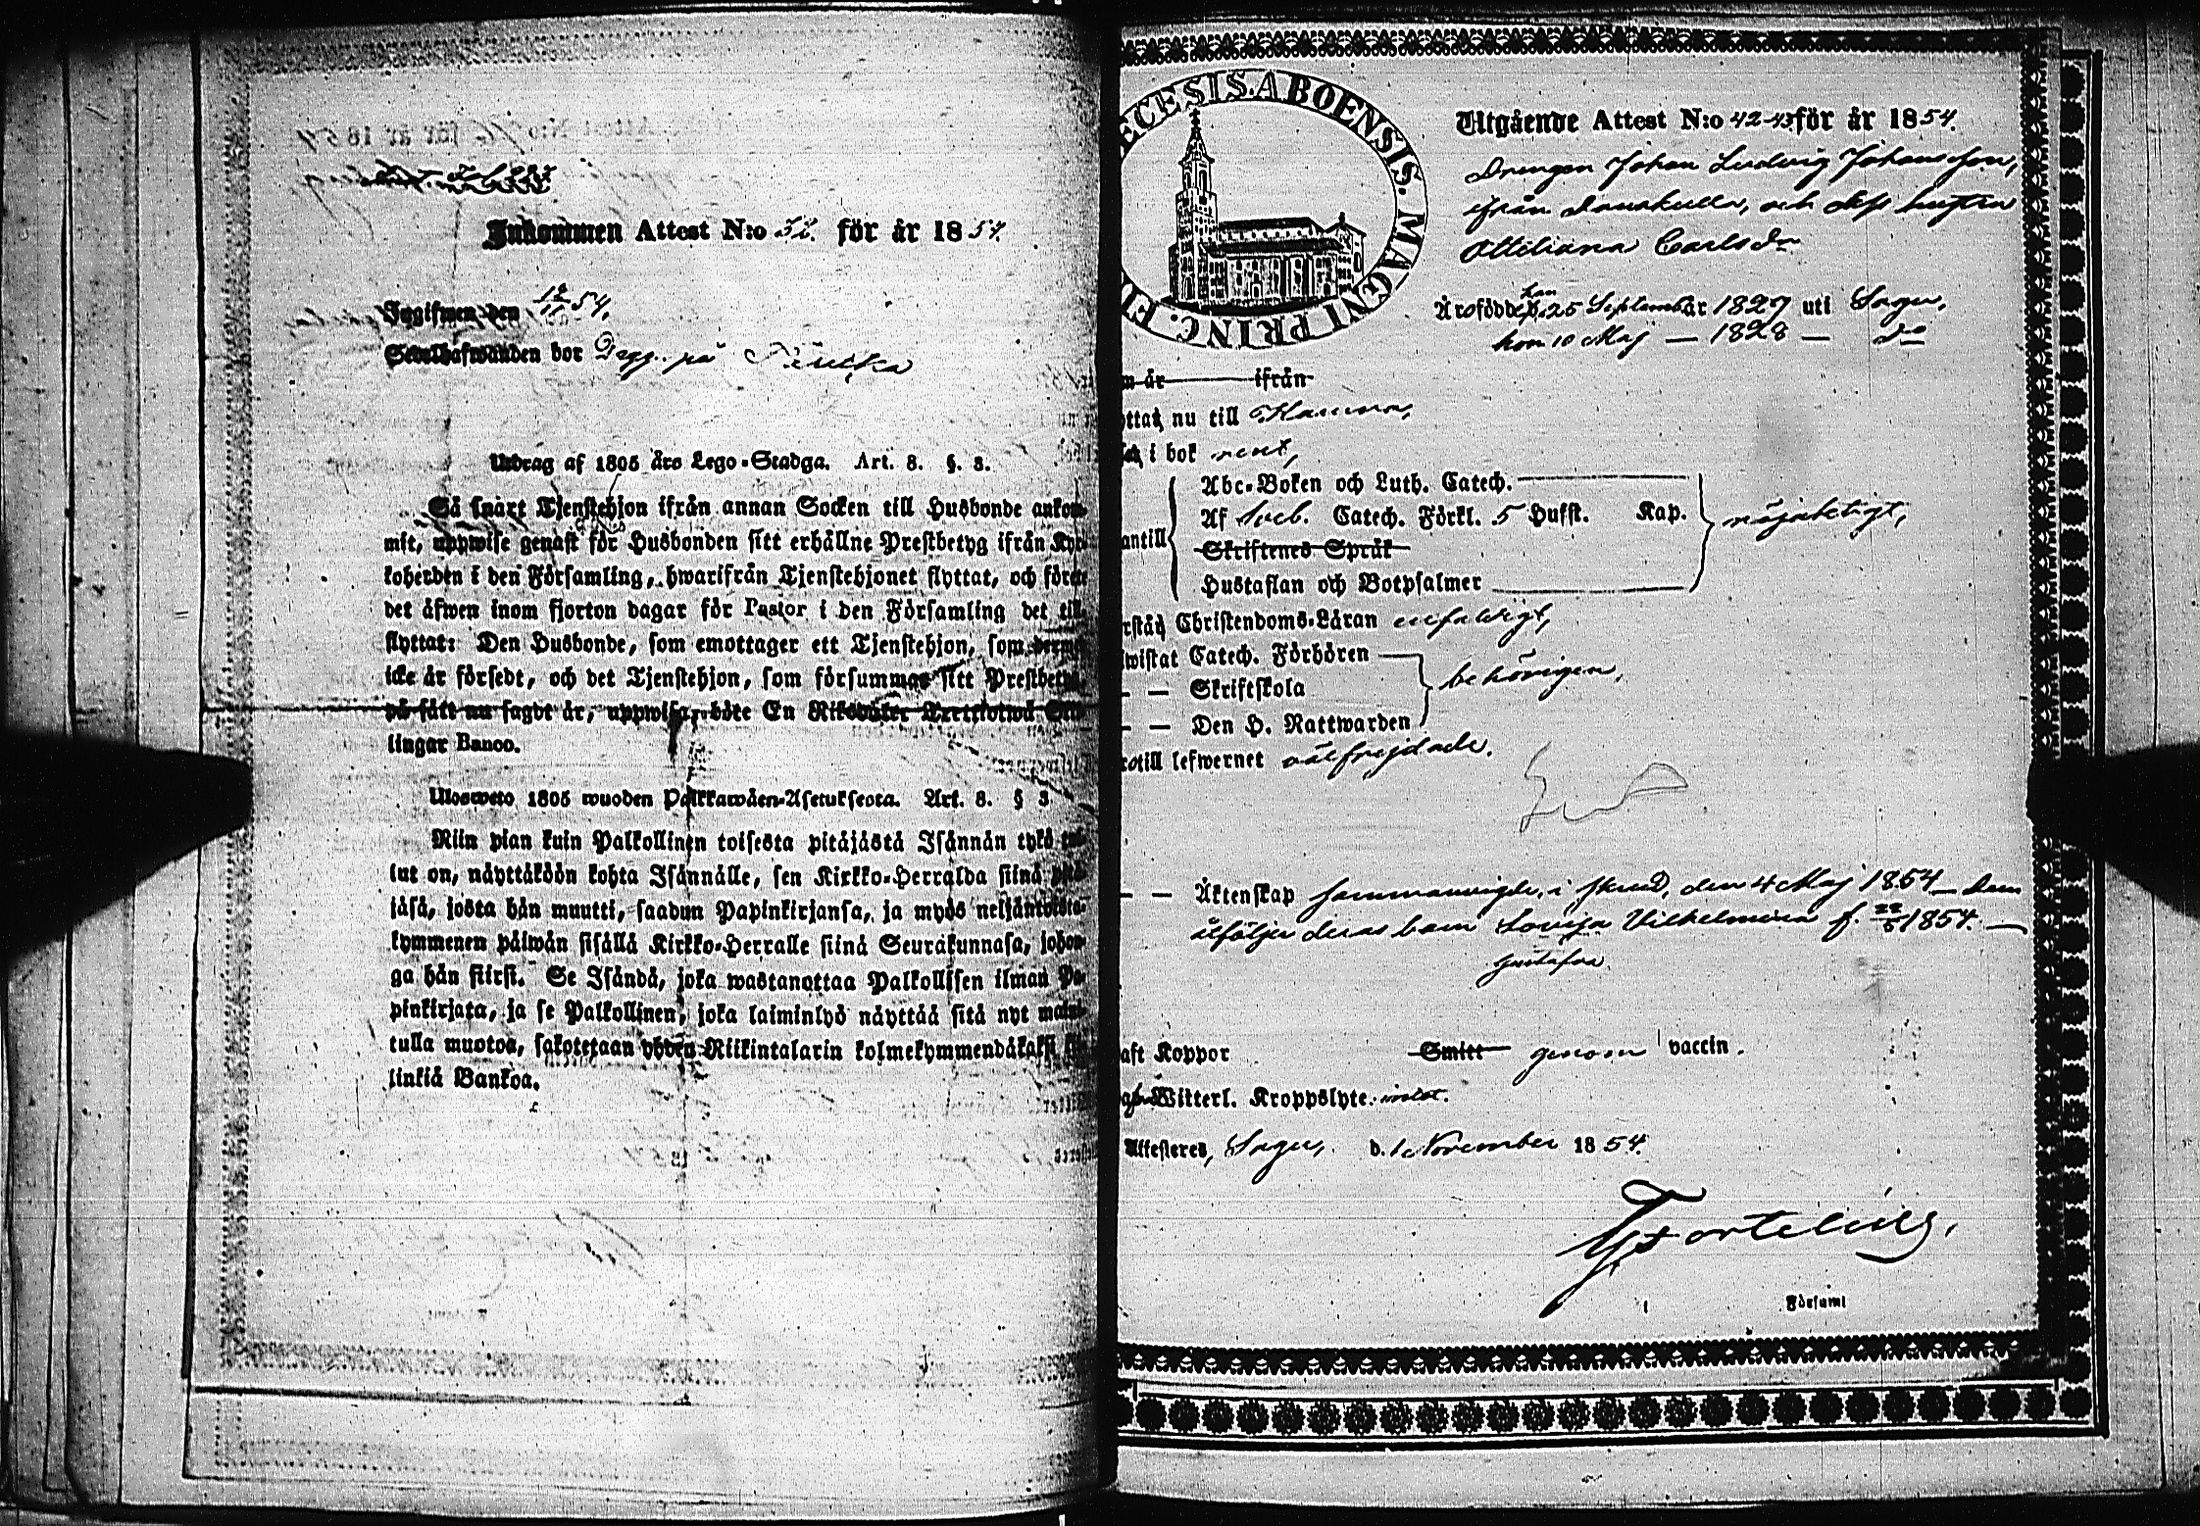 Inkommen Attest N:o 32. för år 1854.
Ingifwen den 12/11 54.
Sedelhafwanden bor på
Utdrag af 1805 års Lego-Stadga. Art. 8. §. 3.
Så snart Tjenstehjon ifrån annan Socken till Husbonde ankom-
mit, uppwise genast för Husbonden sitt erhållne Prestbetyg ifrån Kyr-
koherden i den Församling, hwarifrån Tjenstehjonet flyttat, och förete
det äfwen inom fjorton dagar för Pastor i den Församling det till-
flyttat: Den Husbonde, som emottager ett Tjenstehjon, som dermed
icke är försedt, och det Tjenstehjon, som försummar sitt Prestbetyg,
på sätt nu sagdt är, uppwisa, böte En Riksdaler Trettiotwå Skil-
lingar Banco.
Ulosweto 1805 wuoden Palkkawäen-Asetuksesta. Art. 8. § 3
Niin pian kuin Palkollinen toisesta pitäjästä Isännän tykö tul-
lut on, näyttäköön kohta Isännälle, sen Kirkko-Herralda siinä pitä-
jäsä, josta hän muutti, saadun Papinkirjansa, ja myös neljäntoista-
kymmenen päiwän sisällä Kirkko-Herralle siinä Seurakunnasa, johon-
ga hän siirsi. Se Isändä, joka wastanottaa Palkollisen ilman Pa-
pinkirjata, ja se Palkollinen, joka laiminlyö näyttää sitä nyt mainit-
tulla muotoa, sakotetaan yhden Riikintalarin kolmekymmendäkaksi kil-
linkiä Bankoa.
ECESIS. ABOENSIS. MAGNI PRINC.
Utgående Attest N:o 42-43 för år 1854.
Drengen Johan Ludvig Johansson,
ifrån Danskulla, och dess hustru
Ottiliana Carlsdr
Äro födde, han 25 September år 1827 uti Sagu,
hon 10 Maj — 1828 — do
m år ifrån
ottat nu till Karuna,
i bok rent,
antill
Abc-Boken och Luth. Catech.
Af Sveb. Catech. Förkl. 5 Hufst. Kap. nöjaktigt,
Skriftenes Språk
Hustaflan och Botpsalmer
rstår Christendoms-Läran enfaldigt,
iwistat Catech. Förhören
— — Skriftskola behörigen,
— — Den H. Nattwarden
till lefwernet välfrejdade.
— — Äktenskap sammanvigde, i Skrud, den 4 Maj 1854 — Dem
åtföljer deras barn Lovisa Vilhelmina f. 22/6 1854. —
Gustafva
aft Koppor Smitt genom vaccin.
Witterl. Kroppslyte intet.
Attesteres, Sagu, d. 1 November 1854.
Fortelius,
Församl